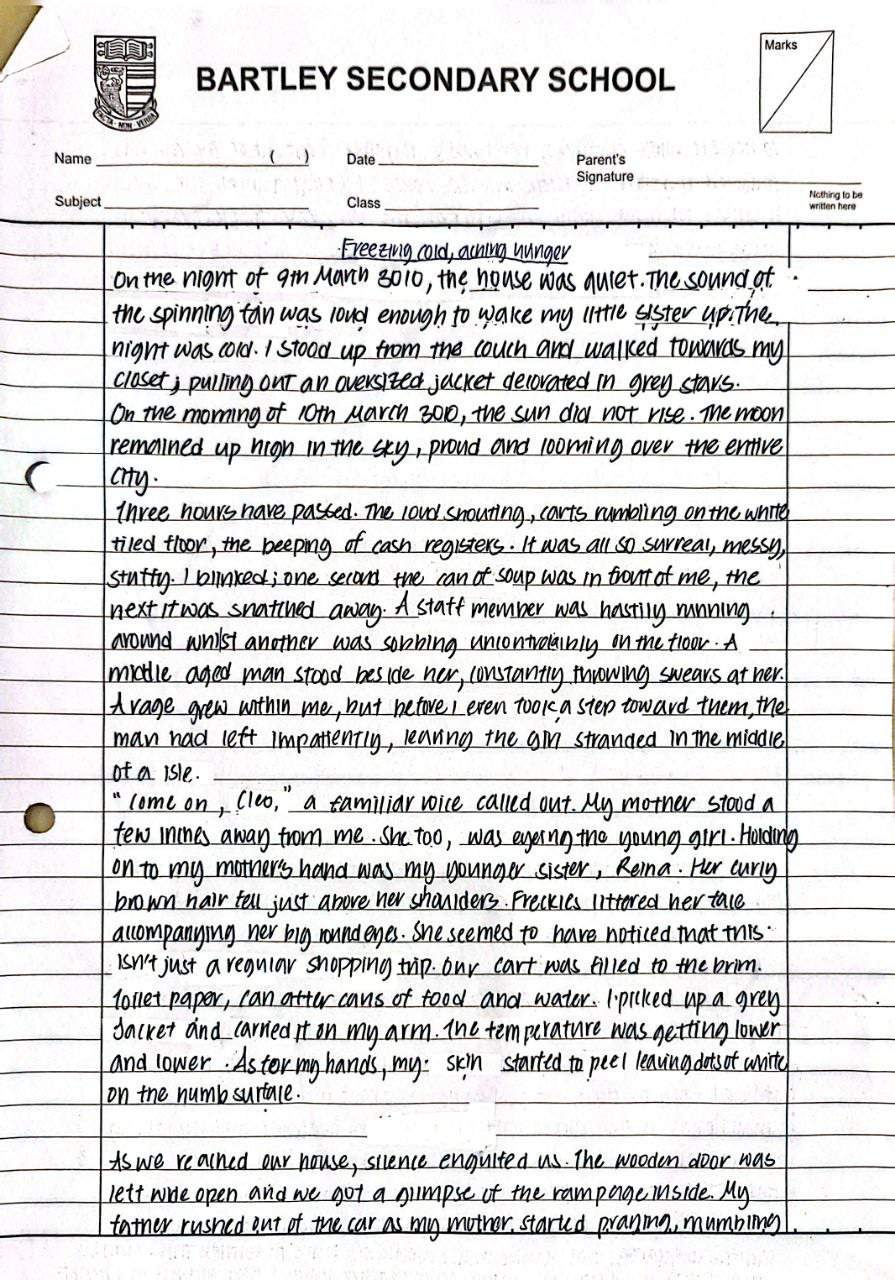 BARTLEY SECONDARY SCHOOL
Marks
FACTA · NON · VERBA
Name ( ) Date Parent's
Signature
Subject Class
Nothing to be
written here
Freezing cold, aching hunger
On the night of 9th March 3010, the house was quiet. The sound of
the spinning fan was loud enough to wake my little sister up. The
night was cold. I stood up from the couch and walked towards my
closet; pulling out an oversized jacket decorated in grey stars.
On the morning of 10th March 3010, the sun did not rise. The moon
remained up high in the sky, proud and looming over the entire
city.
Three hours have passed. The loud shouting, carts rumbling on the white
tiled floor, the beeping of cash registers. It was all so surreal, messy,
stuffy. I blinked; one second the can of soup was in front of me, the
next it was snatched away. A staff member was hastily running
around whilst another was sobbing uncontrolaibly on the floor. A
middle aged man stood beside her, constantly throwing swears at her.
A rage grew within me, but before I even took a step toward them, the
man had left impatiently, leaving the girl stranded in the middle
of a isle.
"Come on, Cleo," a familiar voice called out. My mother stood a
few inches away from me. She too, was eyeing the young girl. Holding
on to my mother's hand was my younger sister, Reina. Her curly
brown hair fell just above her shoulders. Freckles littered her face
accompanying her big round eyes. She seemed to have noticed that this
isn't just a regular shopping trip. Our cart was filled to the brim.
Toilet paper, can after cans of food and water. I picked up a grey
Jacket and carried it on my arm. The temperature was getting lower
and lower. As for my hands, my skin started to peel leaving dots of white
on the numb surface.
As we reached our house, silence engulfed us. The wooden door was
left wide open and we got a glimpse of the rampage inside. My
father rushed out of the car as my mother started praying, mumbling